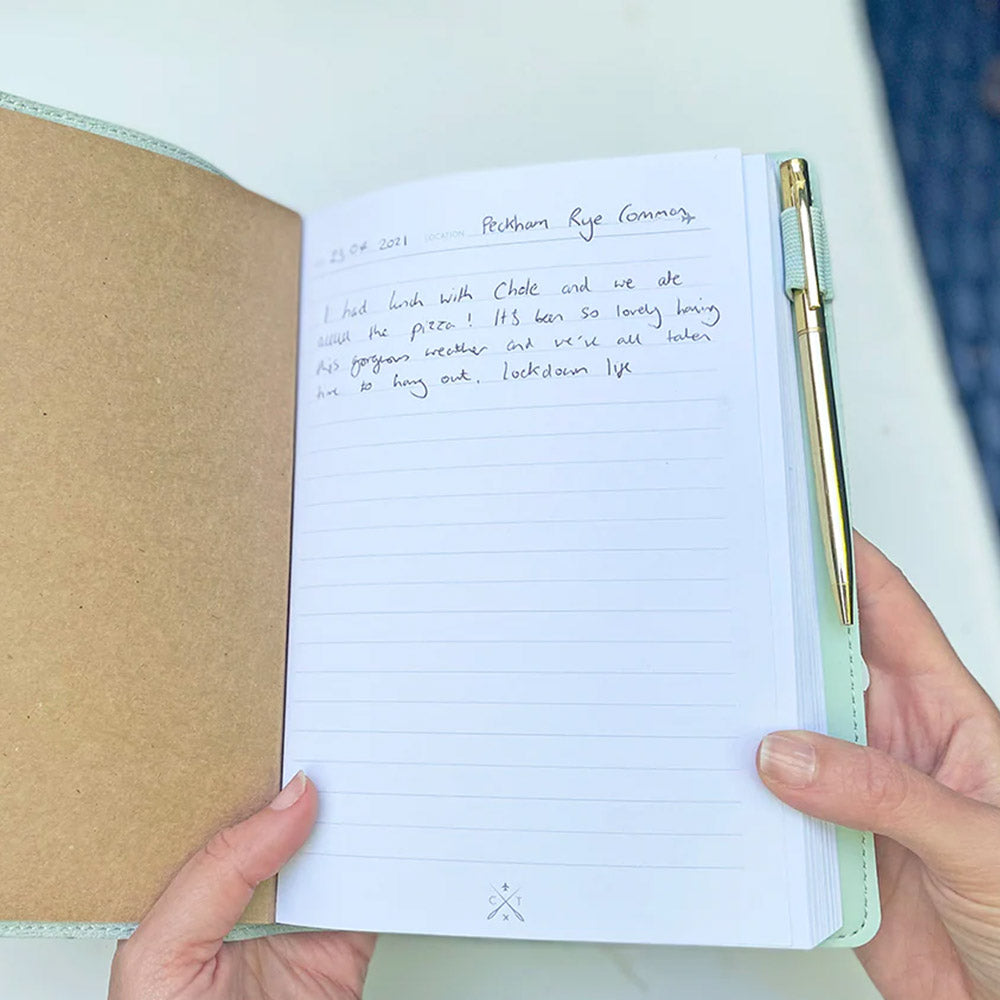 23 04 2021 LOCATION Peckham Rye Common
I had lunch with Chloe and we ate
alllll the pizza! It's been so lovely having
this gorgeous weather and we've all taken
time to hang out. Lockdown life
C T